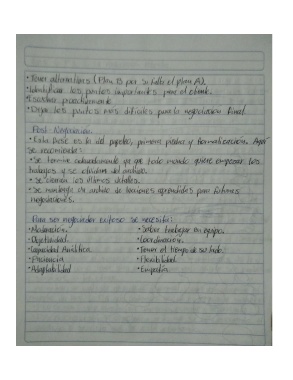 •Tener alternativas (Plan B por si falla el plan A).
•Identificar los puntos importantes para el cliente.
•Escuchar proactivamente.
•Dejar los puntos más difíciles para la negociación final.
Post-Negociación.
•Esta fase es la del papeleo, primeros pasos y formalización. Aquí
se recomienda:
•Se termine archivando ya que todo mundo quiere empezar los
trabajos y se olvidan del archivo.
•Se cierran los últimos detalles.
•Se mantenga un archivo de lecciones aprendidas para futuras
negociaciones.
Para ser negociador exitoso se necesita:
•Moderación.
•Saber trabajar en equipo.
•Objetividad.
•Coordinación.
•Capacidad Analítica.
•Tener el tiempo de su lado.
•Paciencia
•Flexibilidad.
•Adaptabilidad
•Empatía